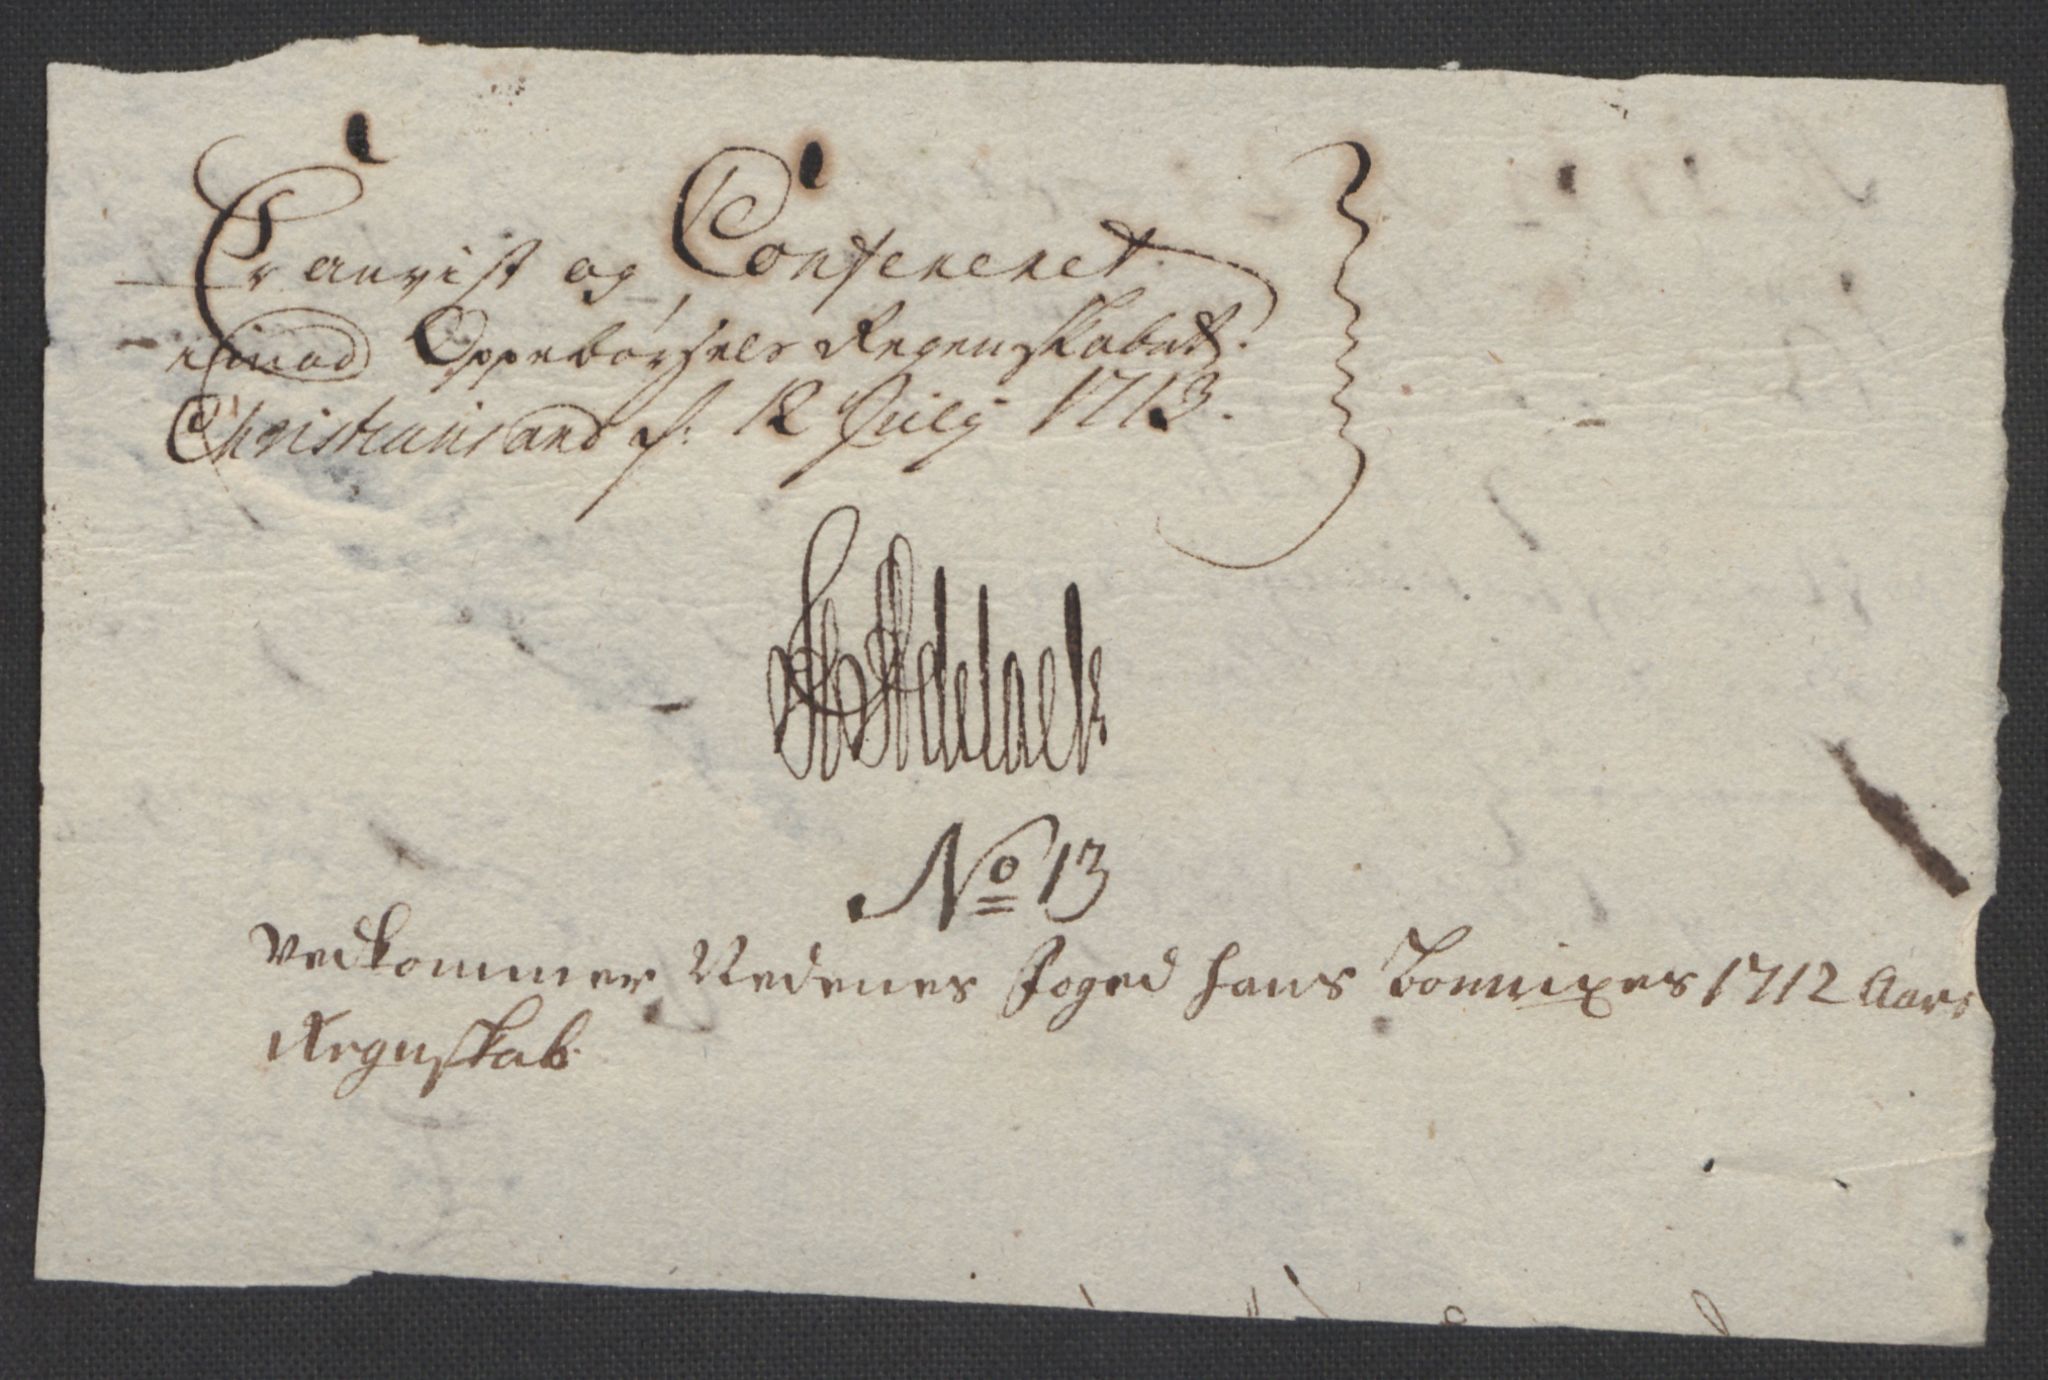 Er anvist og Confereret
imod Oppebørsels Regenskabet.
Christiansand d: 12 Julij 1713.
Adelaer
No 13
Vedkommer Nedenes Foged Hans Bomixes 1712 Aars
Regnskab